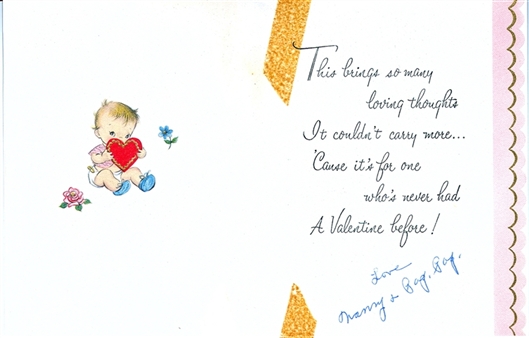 This brings so many
loving thoughts
It couldn't carry more...
'Cause it's for one
who's never had
A Valentine before!
Love
Nanny &